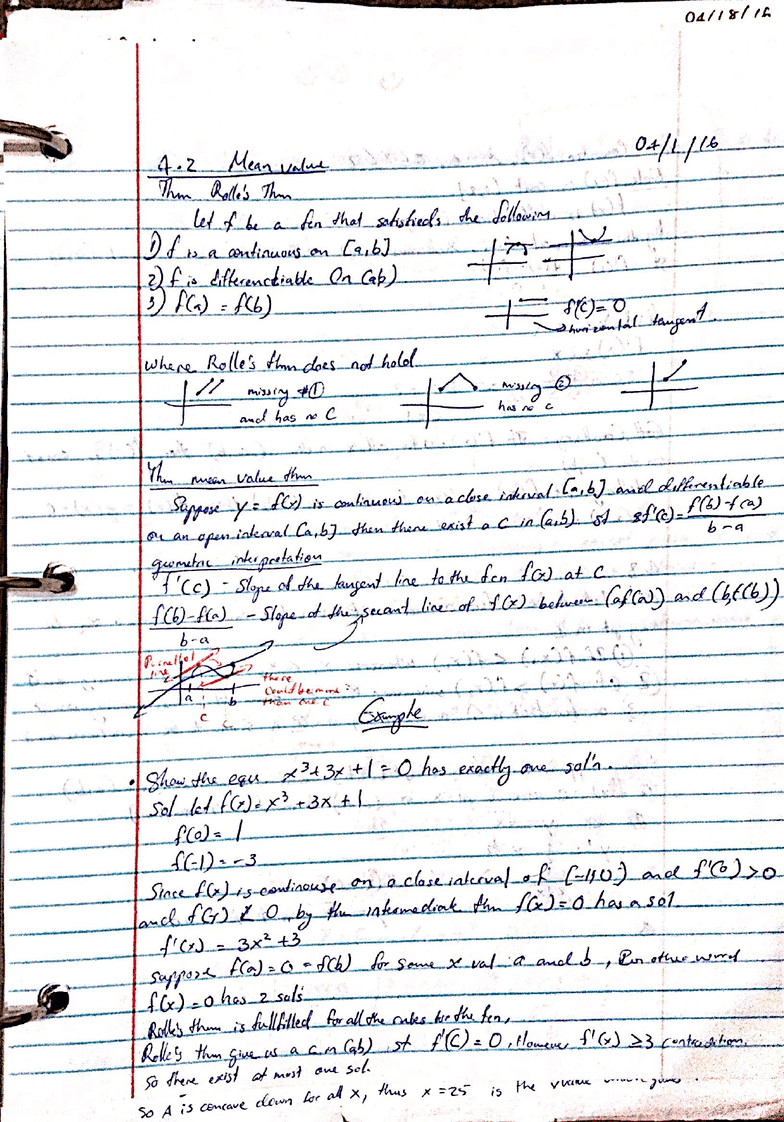 04/18/16
04/1/16
4.2 Mean value
Thm Rolle's Thm
Let f be a fcn that satisfieds the following
1) f is a continuous on [a,b]
2) f is differenctiable On (ab)
3) f(a) = f(b)
f'(c) = 0
horizontal tangent.
where Rolle's thm does not hold
missing #①
and has no C
missing ②
has no c
Thm mean value thm
Suppose y = f(x) is continuous on a close interval [a,b] and differentiable
on an open interval [a,b] then there exist a C in (a,b) st f'(c) = f(b)-f(a)
b-a
geometric interpretation
f'(c) - Slope of the tangent line to the fcn f(x) at C
f(b)-f(a) - Slope of the secant line of f(x) between (af(a)) and (b,f(b))
b-a
Parallel
line
there
could be more
than one c
a
b
c
c
Example
• Show the equ x³+3x+1=0 has exactly one sol'n.
Sol let f(x)=x³+3x+1
f(0)= 1
f(-1)=-3
Since f(x) is continouse on a close interval of [-1,0] and f'(0)>0
and f(-1) < 0, by thm intermediate thm f(x)=0 has a sol.
f'(x) = 3x²+3
suppose f(a)=0=f(b) for some x val a and b, other word
f(x)=0 has 2 sols
Rolle's thm is fullfilled for all the rules the fcn,
Rolle's thm give us a c in (ab) st f'(c)=0, However f'(x) ≥3 contradiction.
So there exist at most one sol.
So A is concave down for all x, thus x=25 is the